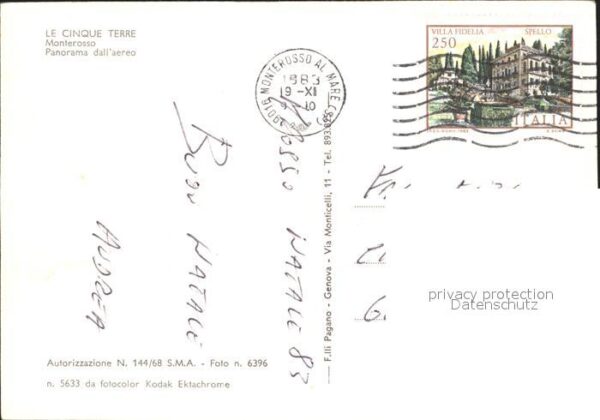 LE CINQUE TERRE
Monterosso
Panorama dall'aereo
VILLA FIDELIA SPELLO
250
ITALIA
19016 MONTEROSSO AL MARE (SP)
1983
19 -XII
-10
NATALE 83
BUON NATALE
ANDREA
F.lli Pagano - Genova - Via Monticelli, 11 - Tel. 893.825
privacy protection
Datenschutz
Autorizzazione N. 144/68 S.M.A. - Foto n. 6396
n. 5633 da fotocolor Kodak Ektachrome